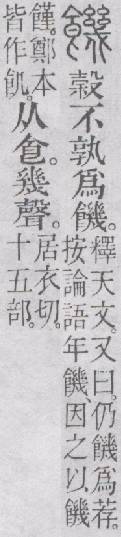 饑 穀不孰爲饑。
釋天文。又曰。仍饑爲荐。
按論語年饑、因之以饑
饉。鄭本
皆作飢。
从𠊊。幾聲。
居衣切。
十五部。